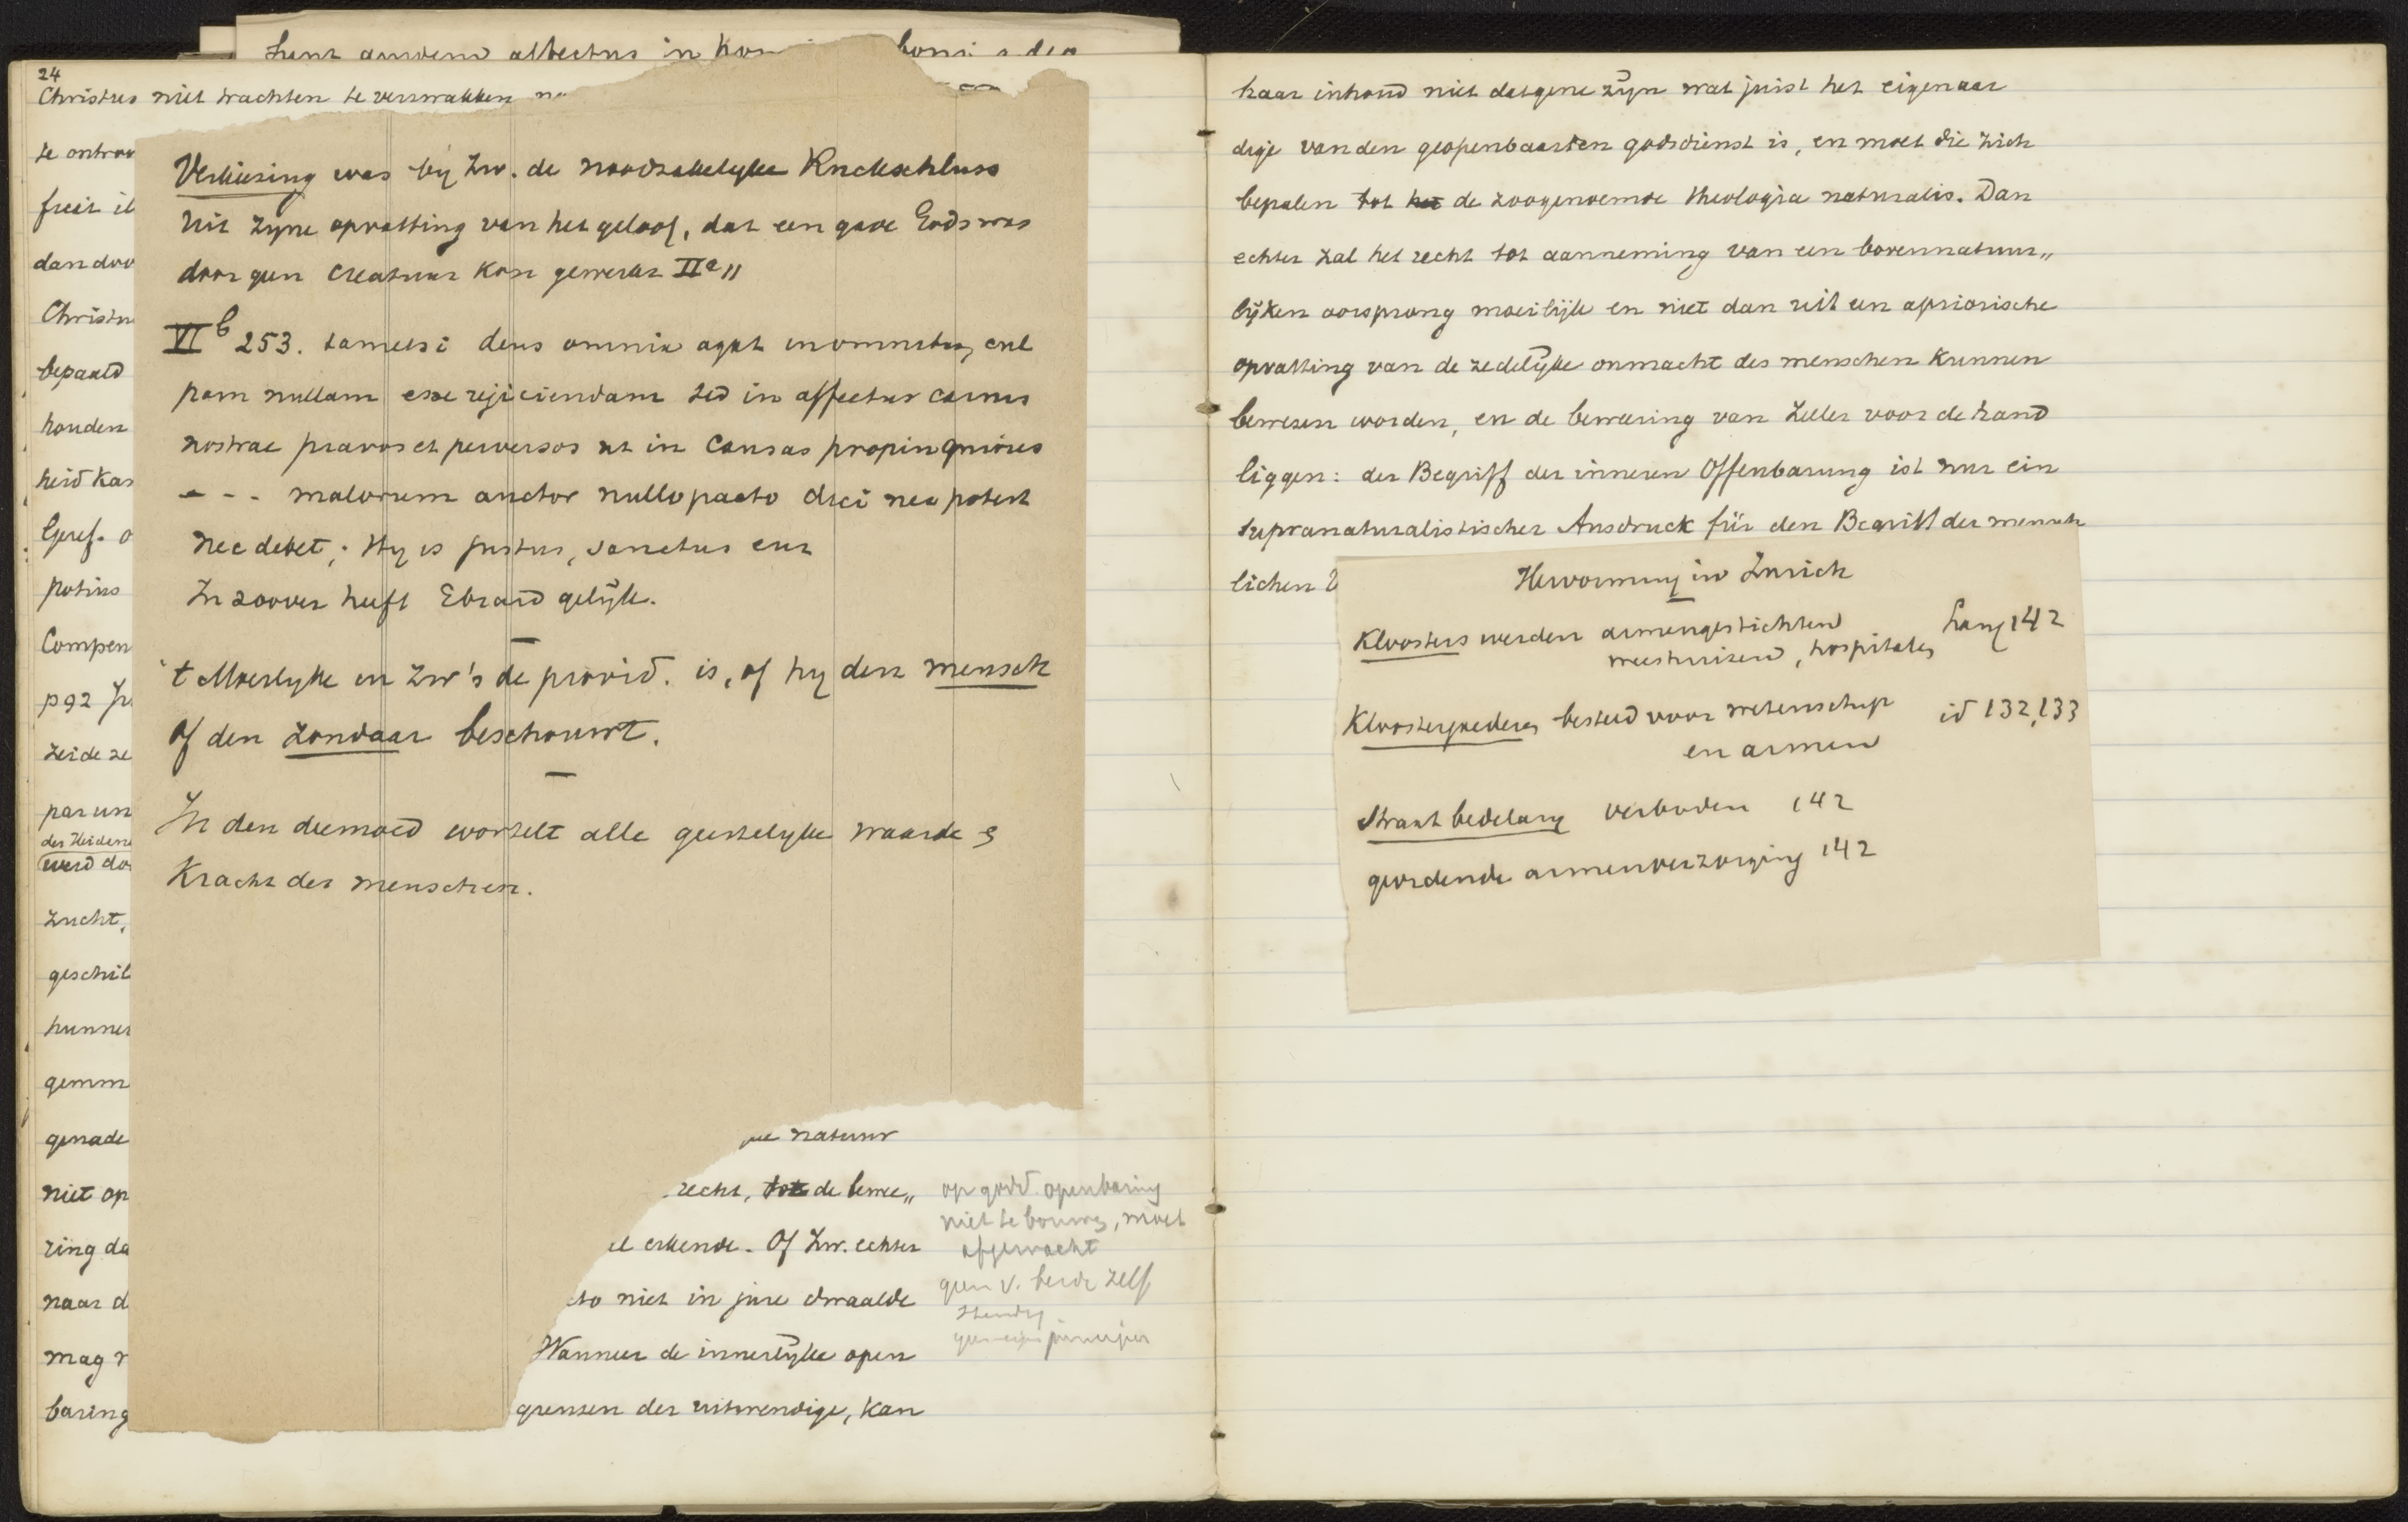 24
Christus niet trachten te verzwakken
te
dan
bepaald
houden
potius
Compen
p 92
zeide ze
der Heidene
werd do
zucht,
geschil
hunner
genade
niet op
ring da
naar d
mag
baring
Verkiezing was by Zw. de noodzakelyke Rückschluss
uit zyne opvatting van het geloof, dat een gave Gods was
door geen creatuur kon gewerkt IIa,,
VIb 253. tametsi deus omnia agat in omnibus, cul
pam nullam esse rejiciendam sed in affectus carnis
nostrae pravos et perversos ut in causas propinquiores
- - - malorum auctor nullo pacto dici nec potest
nec debet; Hy is justus, sanctus enz
In zoover heeft Ebrard gelijk.
't Moeilyke in Zw's de provid. is, of hy den mensch
of den zondaar beschouwt.
In den deemoed wortelt alle geestelyke waarde &
Kracht der menschen.
natuur
recht, tot de bewe,,
erkende. Of Zw. echter
niet in jure dwaalde
Wanneer de innerlijke open
grenzen der uitwendige, kan
op godd. openbaring
niet te bouwen, moet
afgewacht
geen v. beide zelf
standig
haar inhoud niet datgene zijn wat juist het eigenaar
dige van den geopenbaarden godsdienst is, en moet die zich
bepalen tot het de zoogenoemde theologia naturalis. Dan
echter zal het recht tot aanneming van een bovennatuur,,
lijken oorsprong moeilijk en niet dan uit een apriorische
opvatting van de zedelijke onmacht des menschen kunnen
bewezen worden, en de bewering van Zeller voor de hand
liggen: der Begriff der inneren Offenbarung ist nur ein
supranaturalistischer Ausdruck für den Begriff der mensch
lichen
Hervorming in Zurich
Kloosters werden armengestichten
weeshuizen, hospitalen
Lang 142
Kloostergoederen besteed voor wetenschap
en armen
id 132, 133
Straat bedelary verboden 142
geordende armenverzorging 142